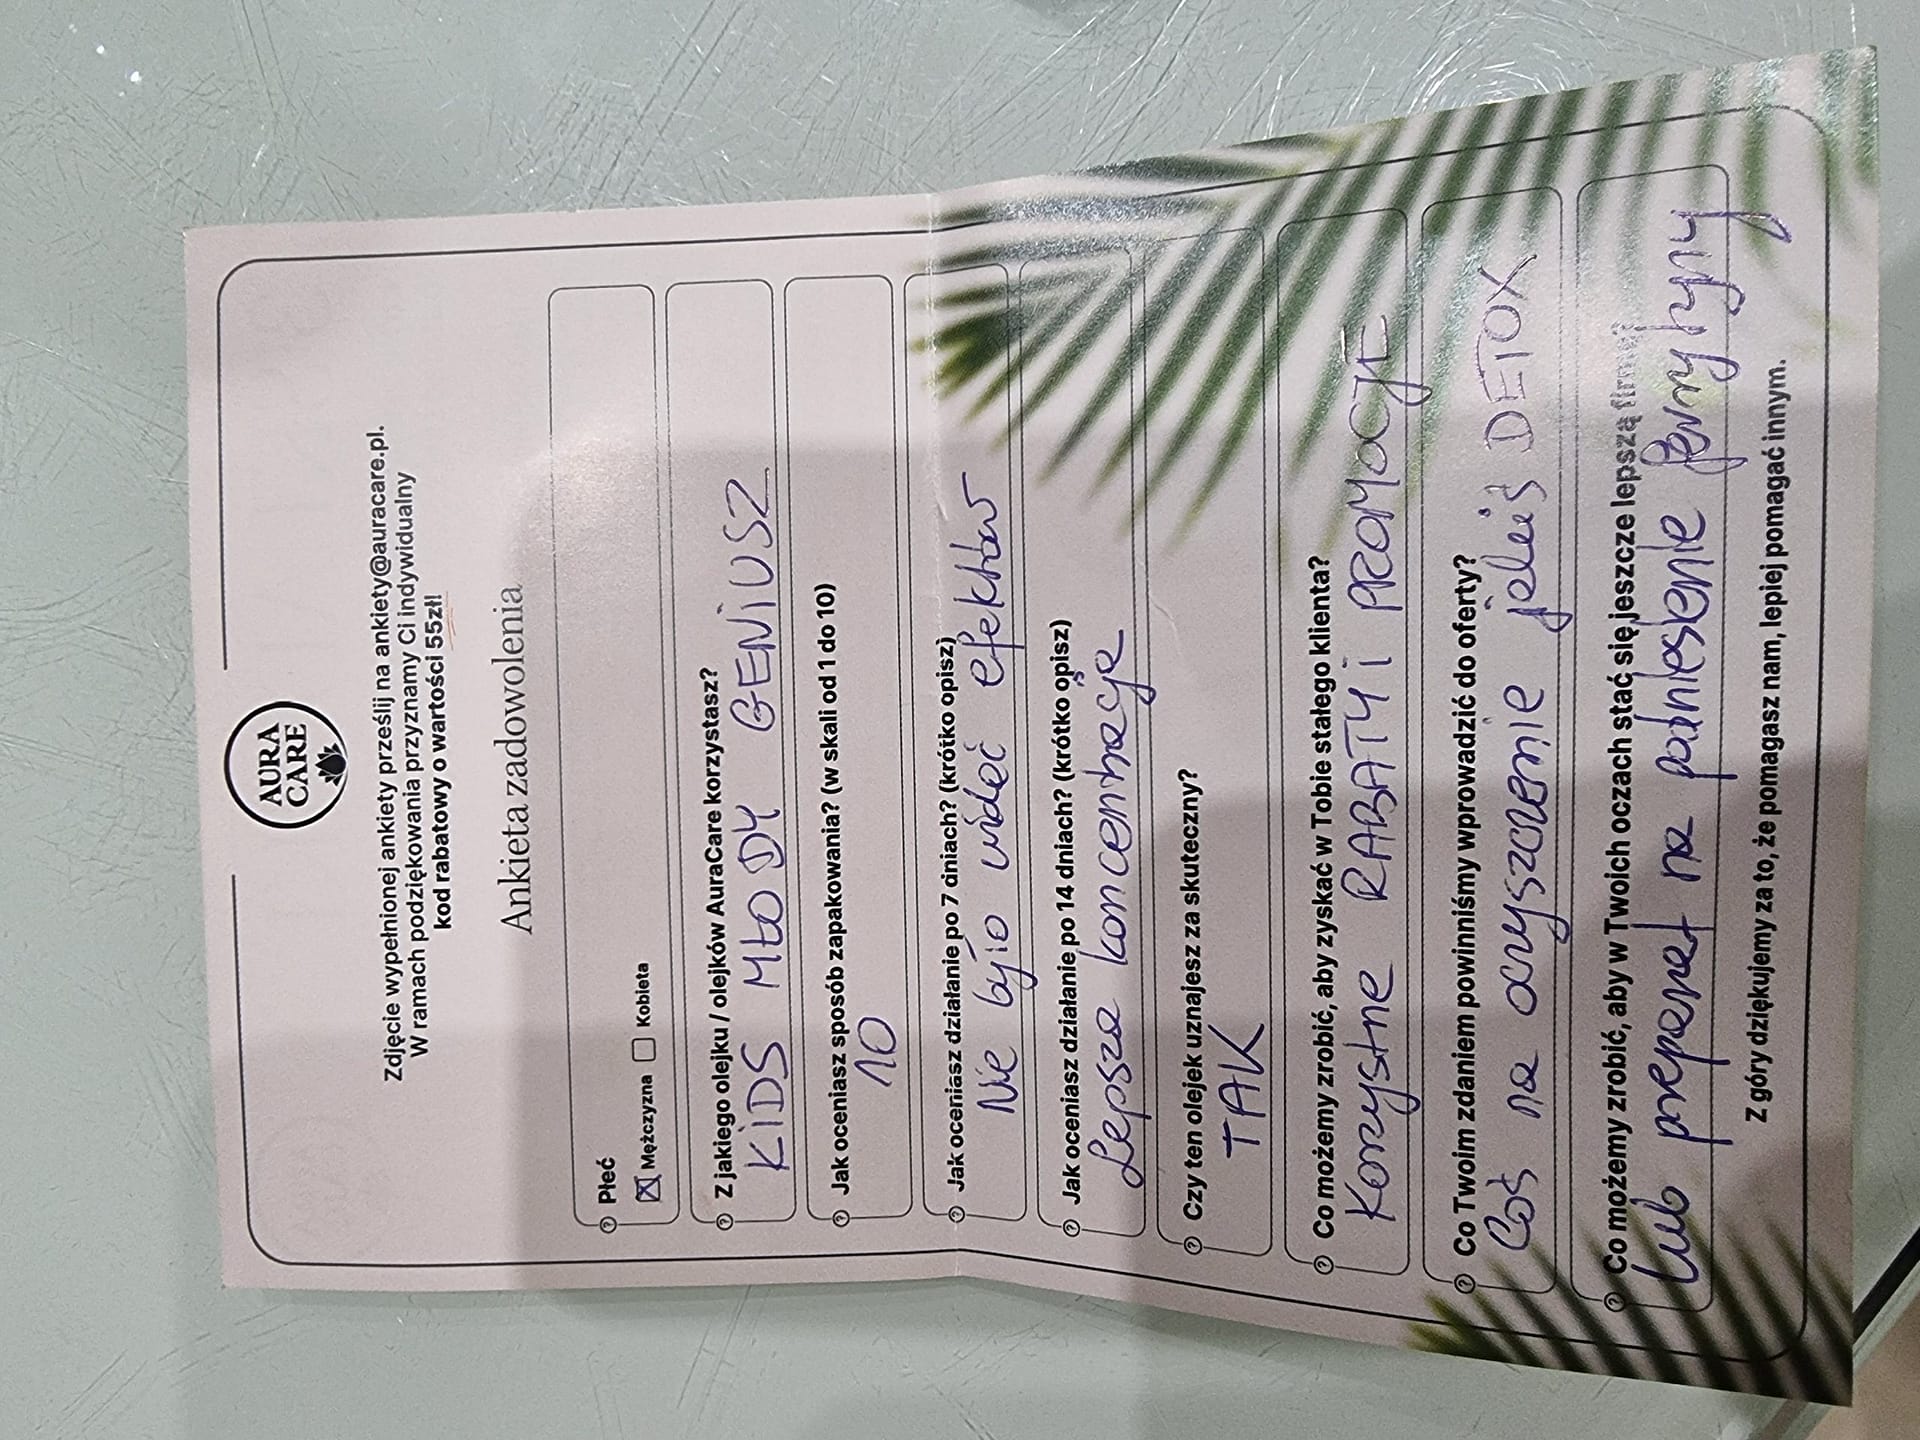 AURA
CARE
Zdjęcie wypełnionej ankiety prześlij na ankiety@auracare.pl.
W ramach podziękowania przyznamy Ci indywidualny
kod rabatowy o wartości 55zł!
Ankieta zadowolenia
Płeć
Mężczyzna Kobieta
Z jakiego olejku / olejków AuraCare korzystasz?
KIDS MŁODY GENIUSZ
Jak oceniasz sposób zapakowania? (w skali od 1 do 10)
10
Jak oceniasz działanie po 7 dniach? (krótko opisz)
Nie było widać efektów
Jak oceniasz działanie po 14 dniach? (krótko opisz)
Lepsza koncentracja
Czy ten olejek uznajesz za skuteczny?
TAK
Co możemy zrobić, aby zyskać w Tobie stałego klienta?
Korzystne RABATY i PROMOCJE
Co Twoim zdaniem powinniśmy wprowadzić do oferty?
Coś na oczyszczenie jakiś DETOX
Co możemy zrobić, aby w Twoich oczach stać się jeszcze lepszą firmą?
lub preparat na podniesienie ferrytyny
Z góry dziękujemy za to, że pomagasz nam, lepiej pomagać innym.